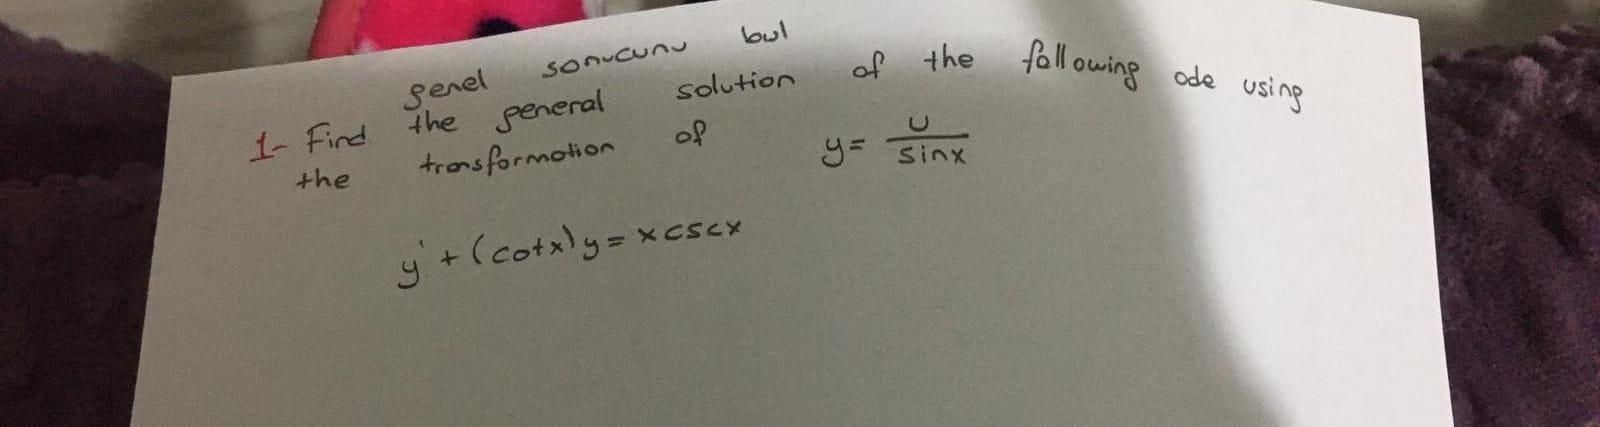 genel sonucunu bul
1- Find the general solution of the following ode using
the transformation of y= u/sinx
y' + (cotx)y = xcscx